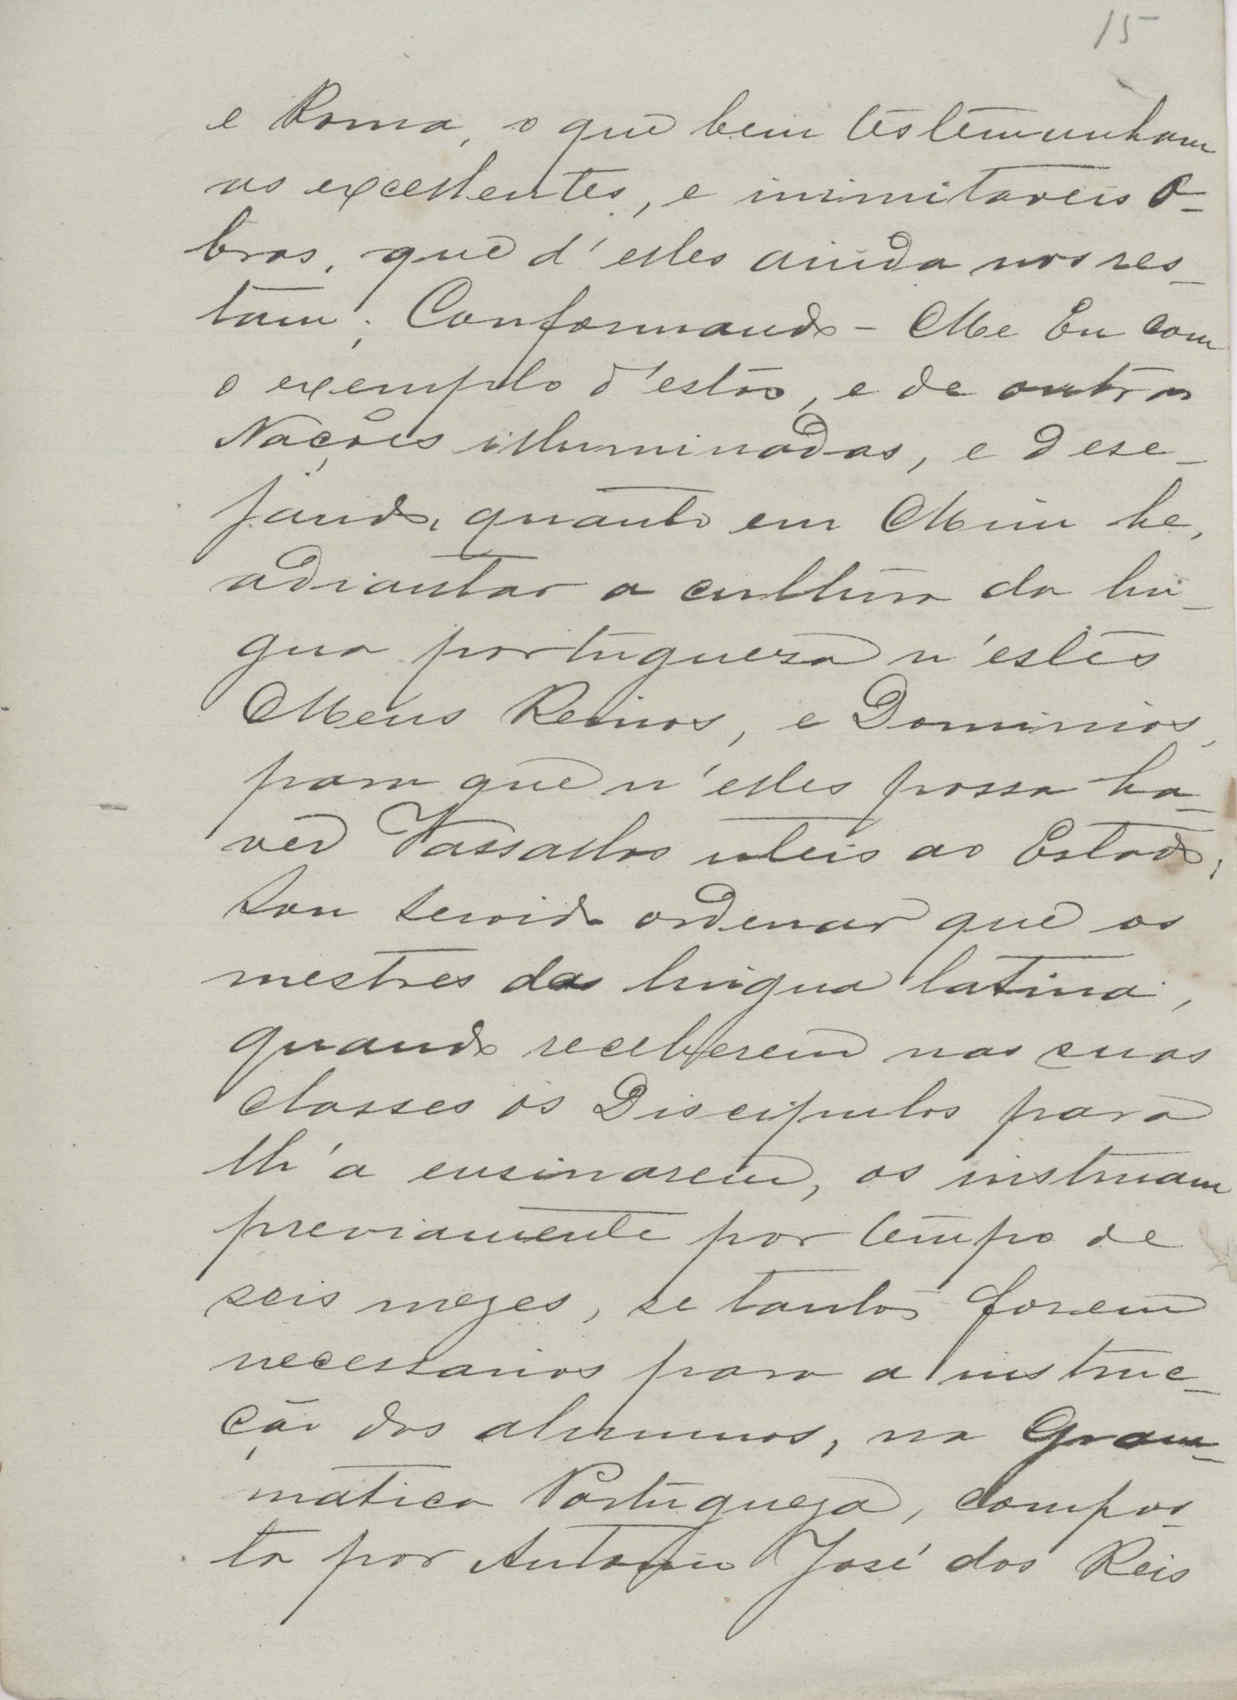 15
e Roma, o que bem testemunham
as excellentes, e inimitaveis o-
bras, que d'elles ainda nos res-
tam; Conformando-Me Eu com
o exemplo d'estas, e de outras
Nações illuminadas, e dese-
jando, quanto em Mim he,
adiantar a cultura da lin-
gua portugueza n'estes
Meus Reinos, e Dominios,
para que n'elles possa ha-
ver Vassallos uteis ao Estado,
Sou servido ordenar que os
mestres da lingua latina,
quando receberem nas suas
classes os Discipulos para
lh'a ensinarem, os instruam
previamente por tempo de
seis mezes, se tantos forem
necessarios para a instruc-
ção dos alumnos, na Gram-
matica Portugueza, compos-
ta por Antonio José dos Reis